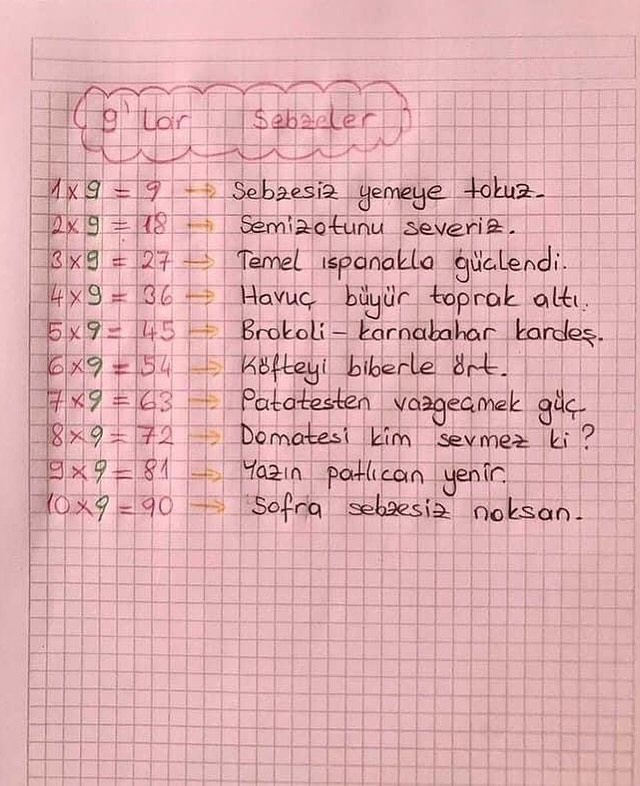 9'lar Sebzeler
1x9 = 9 → Sebzesiz yemeye tokuz.
2x9 = 18 → Semizotunu severiz.
3x9 = 27 → Temel ıspanakla güclendi.
4x9 = 36 → Havuç büyür toprak altı.
5x9 = 45 → Brokoli - karnabahar kardeş.
6x9 = 54 → Köfteyi biberle ört.
7x9 = 63 → Patatesten vazgeçmek güç
8x9 = 72 → Domatesi kim sevmez ki?
9x9 = 81 → Yazın patlıcan yenir.
10x9 = 90 → Sofra sebzesiz noksan.